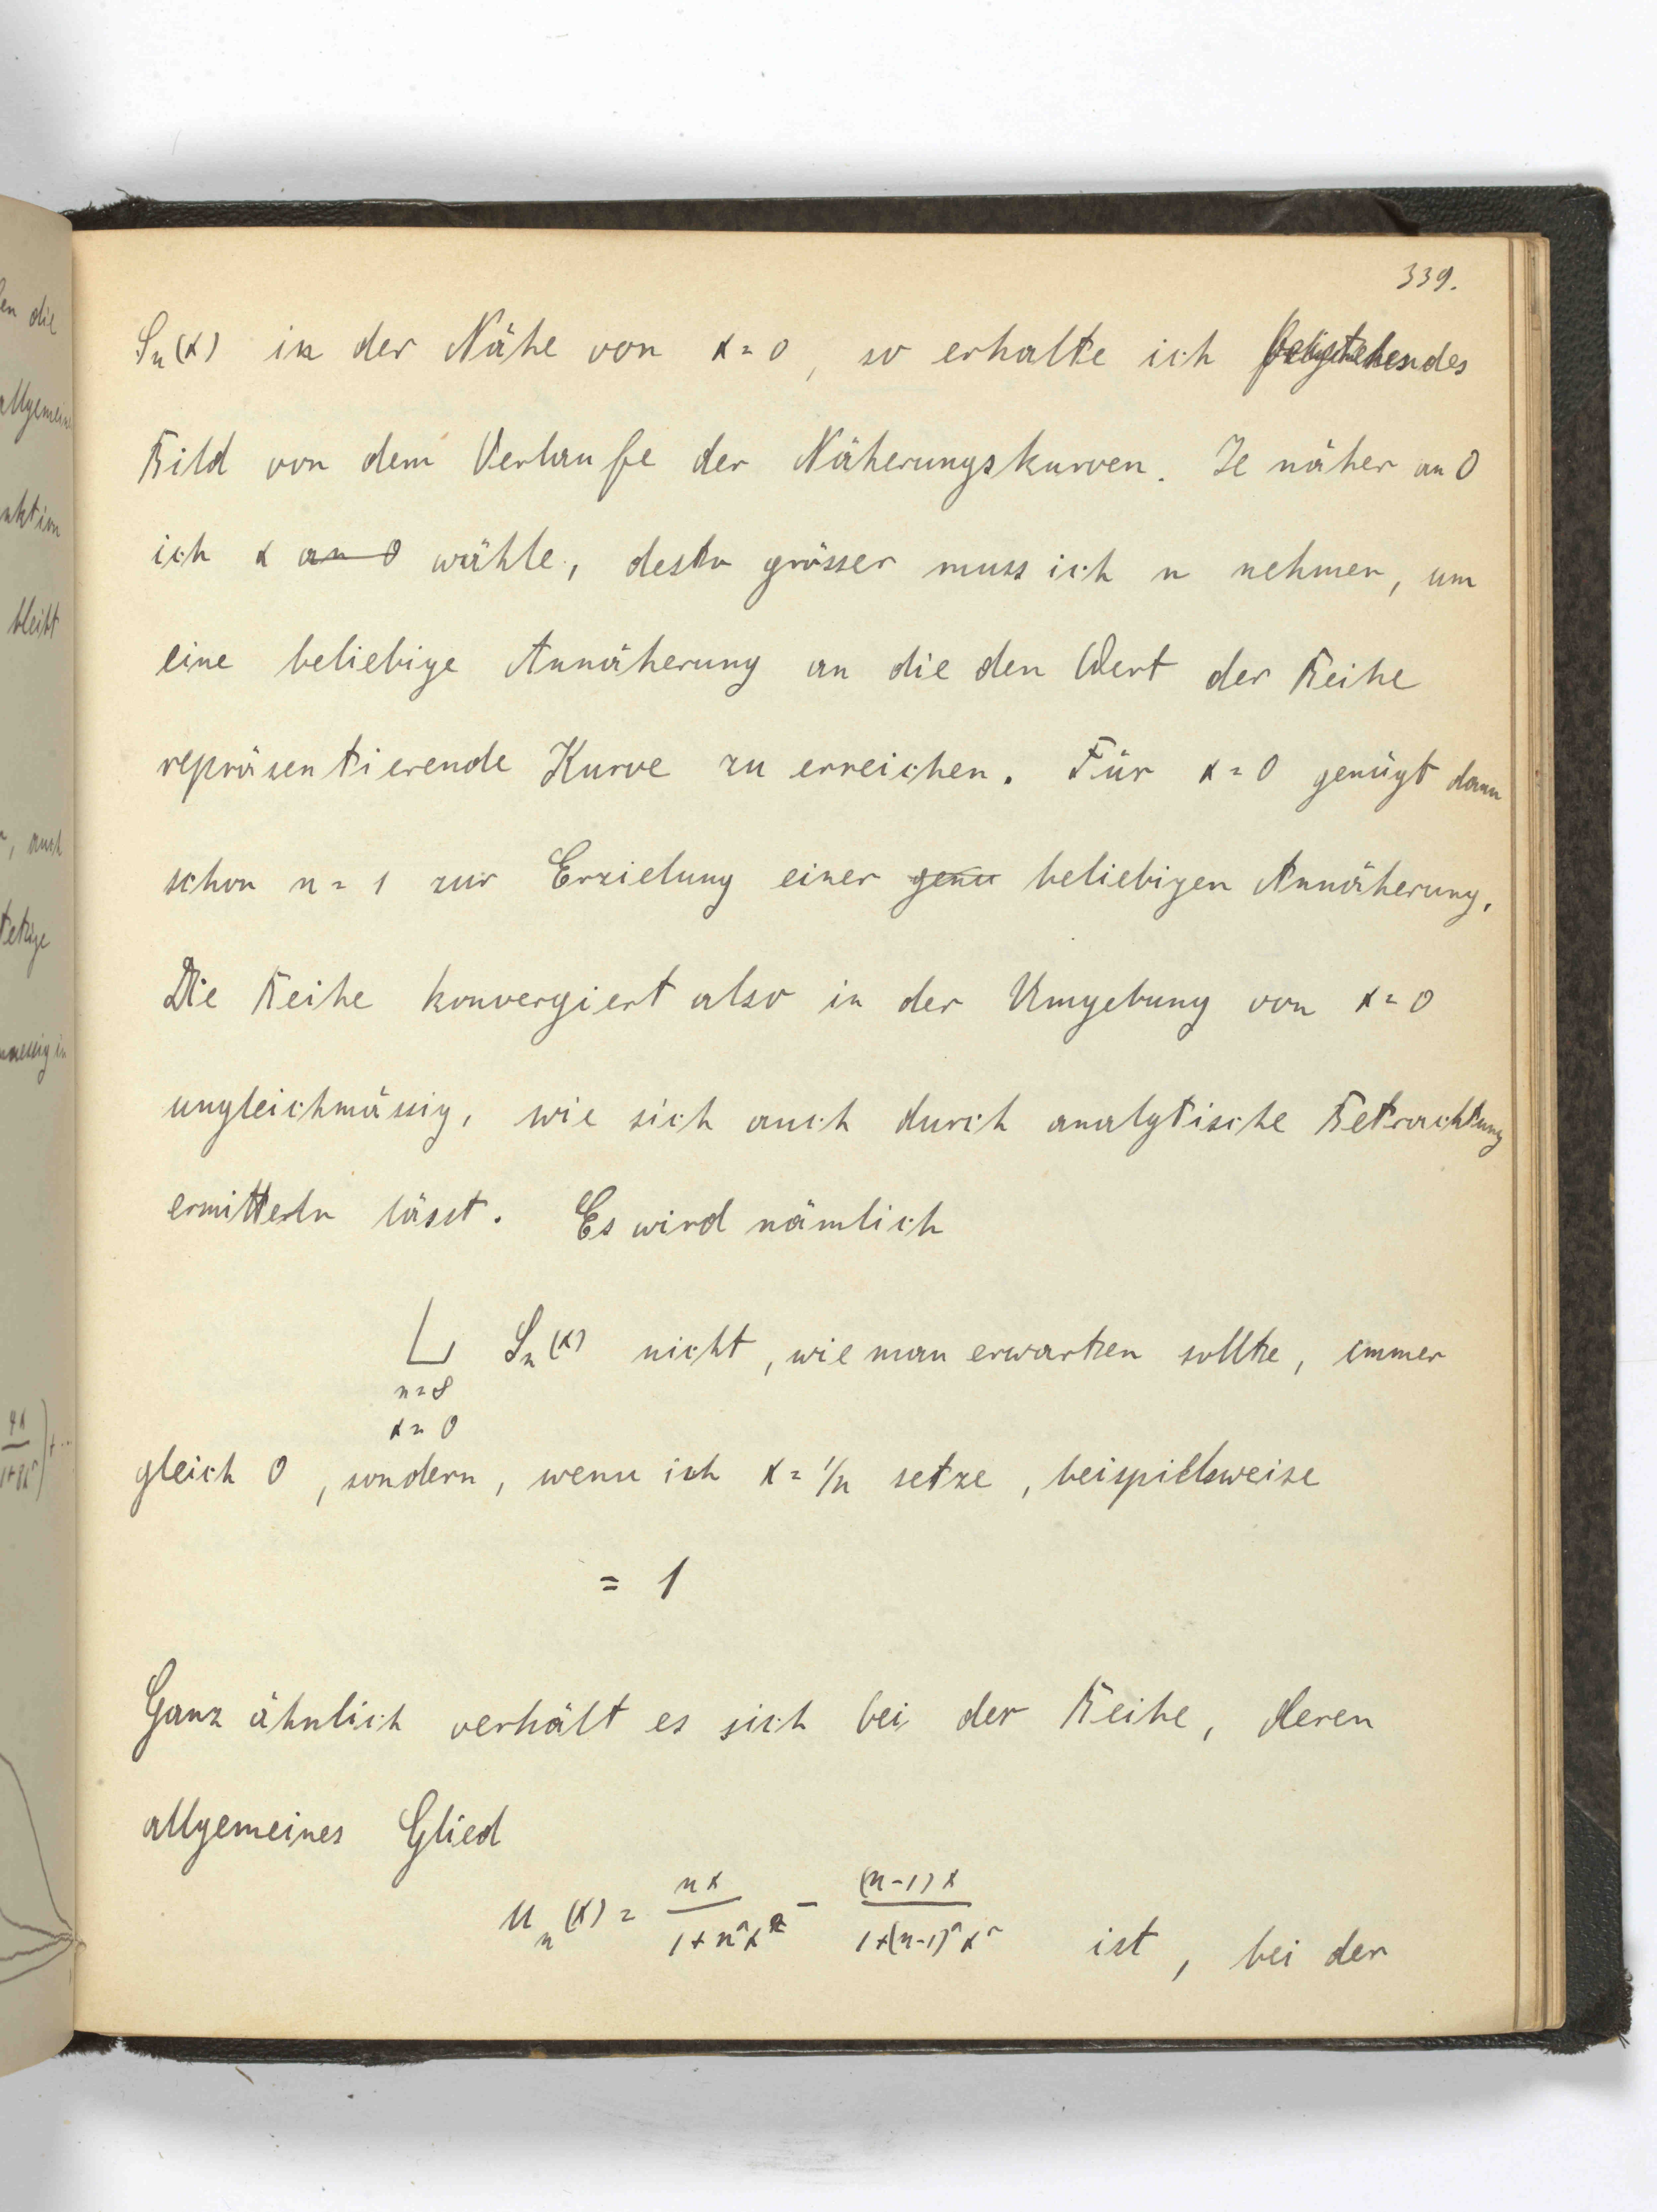 339.
Sn(x) in der Nähe von x=0, so erhalte ich beistehendes
Bild von dem Verlaufe der Näherungskurven. Je näher an 0
ich x an 0 wähle, desto grösser muss ich n nehmen, um
eine beliebige Annäherung an die den Wert der Reihe
repräsentierende Kurve zu erreichen. Für x=0 genügt dann
schon n=1 zur Erzielung einer genu beliebigen Annäherung.
Die Reihe konvergiert also in der Umgebung von x=0
ungleichmässig, wie sich auch durch analytische Betrachtung
ermitteln lässt. Es wird nämlich
L Sn(x) nicht, wie man erwarten sollte, immer
n=∞
x=0
gleich 0, sondern, wenn ich x=1/n setze, beispielsweise
= 1
Ganz ähnlich verhält es sich bei der Reihe, deren
allgemeines Glied
un(x) = nx/(1+n²x²) - (n-1)x/(1+(n-1)²x²) ist, bei der
en die
allgemein
nktion
bleibt
, auch
tetige
mässig in
4x/(1+8x²))+...